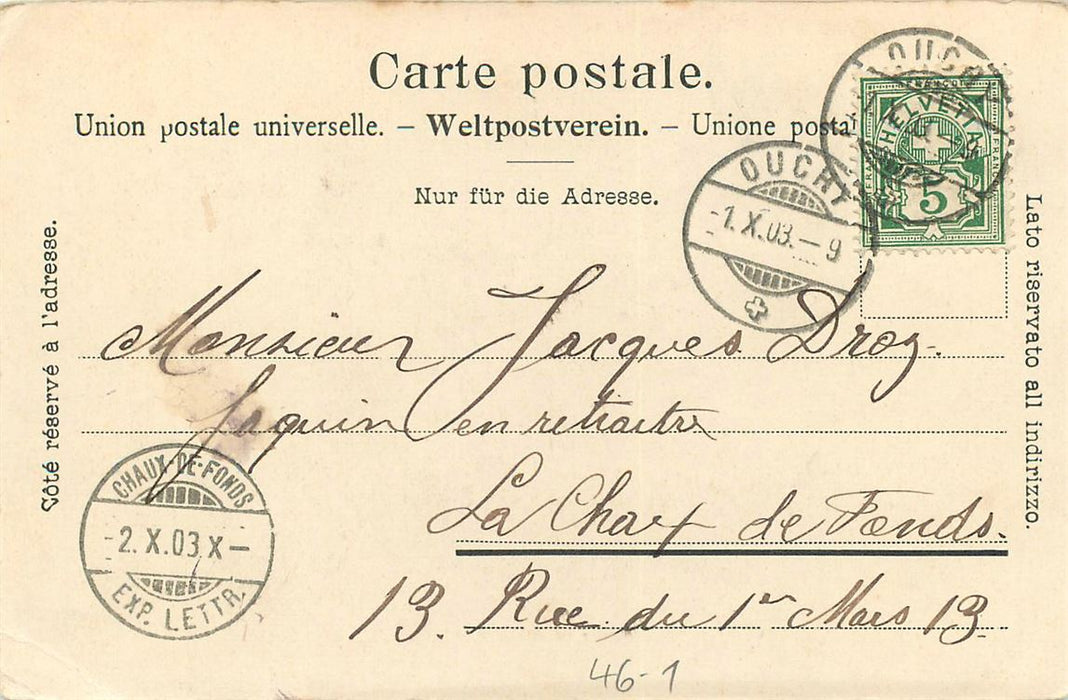 Carte postale.
Union postale universelle. – Weltpostverein. – Unione posta
Nur für die Adresse.
Côté réservé à l'adresse.
Lato riservato all indirizzo.
OUCHY
HELVETIA
FRANCO
5
OUCHY
-1.X.03.-9
Monsieur Jacques Droz.
en retraitre
La Chaux de Fonds.
13. Rue du 1er Mars 13.
CHAUX-DE-FONDS
-2.X.03 X-
EXP. LETTR.
46-1